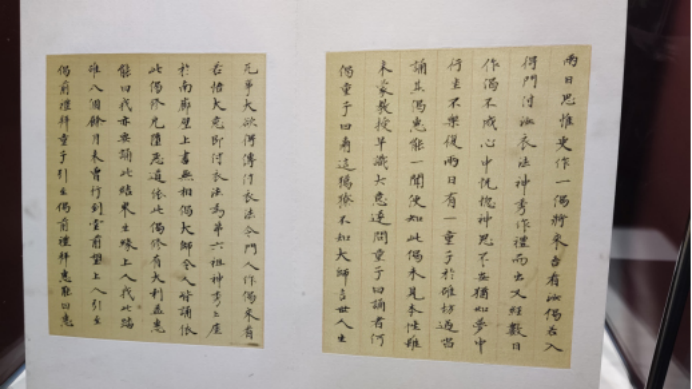 兩日思惟更作一偈將來吾看汝偈若入
得門付汝衣法神秀作禮而出又經數日
作偈不成心中恍惚神思不安猶如夢中
行坐不樂復兩日有一童子於碓坊過唱
誦其偈惠能一聞便知此偈未見本性雖
未蒙教授早識大意遂問童子曰誦者何
偈童子曰爾這獦獠不知大師言世人生
死事大欲得傳付衣法令門人作偈來看
若悟大意即付衣法為第六祖神秀上座
於南廊壁上書無相偈大師令人皆誦依
此偈修免墮惡道依此偈修有大利益惠
能曰我亦要誦此結來生緣上人我此踏
碓八個餘月未曾行到堂前望上人引至
偈前禮拜童子引至偈前禮拜惠能曰惠